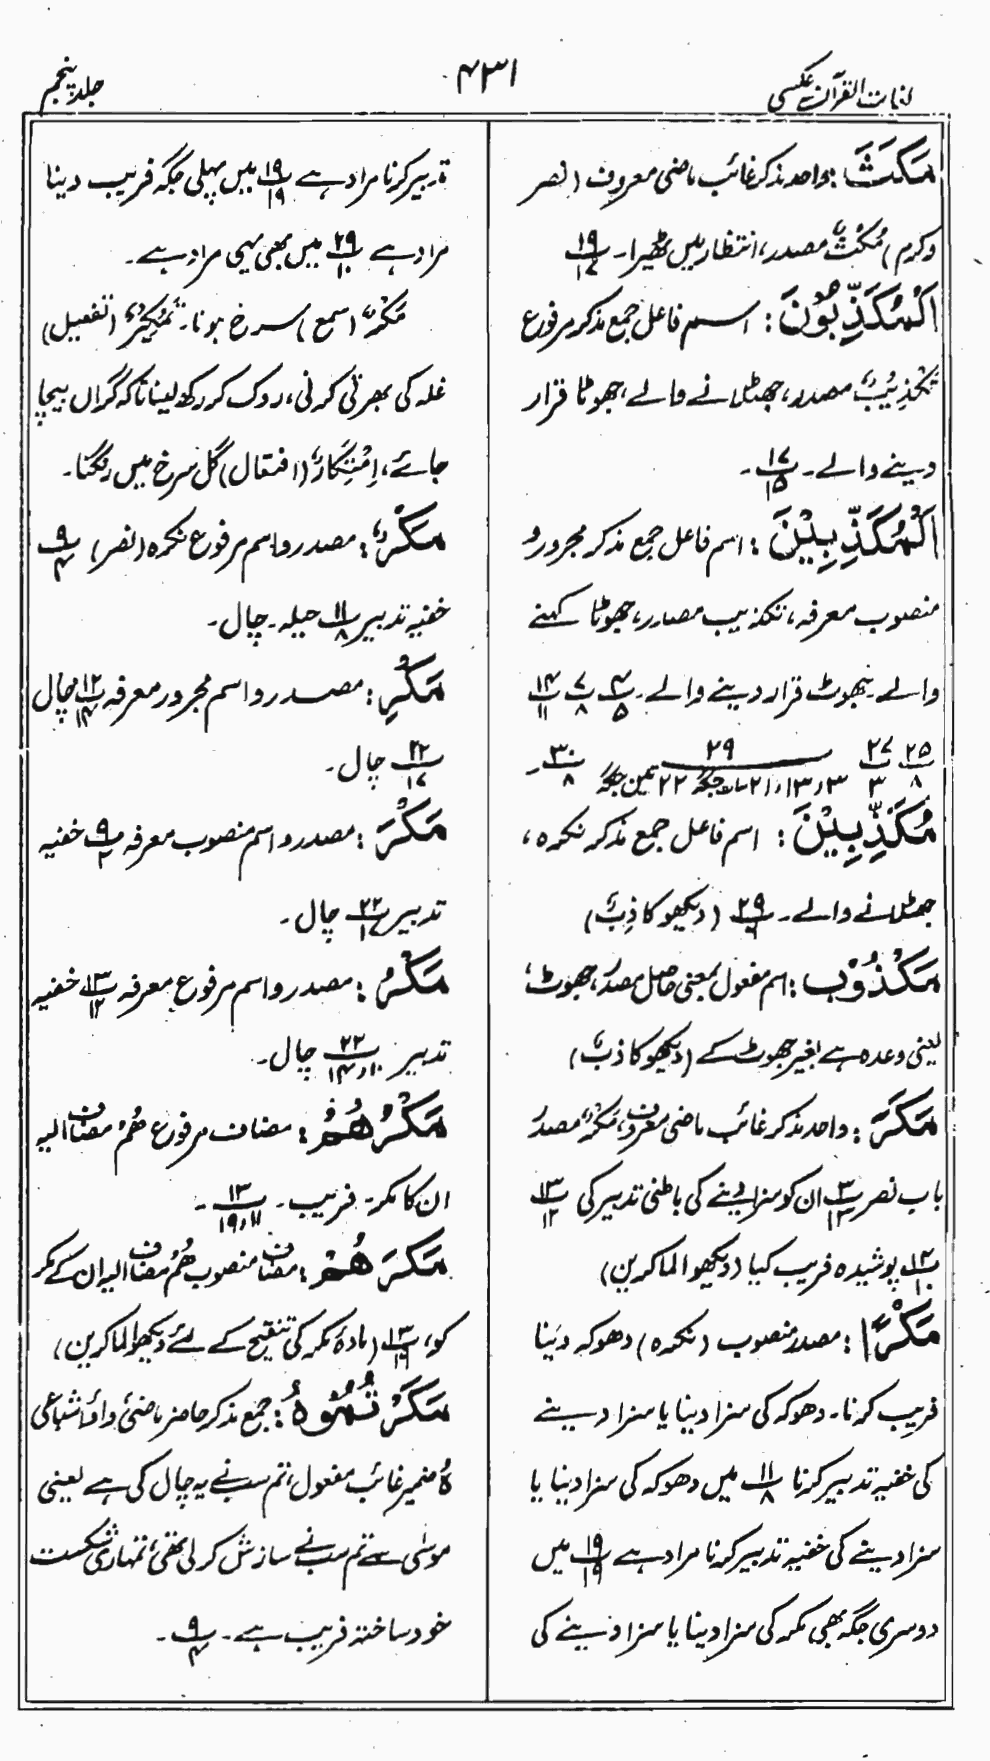 لغات القرآن عکسی
۴۳۱
جلد پنجم
مَكَثَ: واحد مذکر غائب ماضی معروف (نصر
وکرم) مُكْثٌ مصدر، انتظار میں ٹھیرا۔ ۱۹/۱۷
اَلْمُكَذِّبُوْنَ: اسم فاعل جمع مذکر مرفوع
تَكْذِيْبٌ مصدر، جھٹلانے والے، جھوٹا قرار
دینے والے۔ ۲۷/۱۵۔
اَلْمُكَذِّبِيْنَ: اسم فاعل جمع مذکر مجرور و
منصوب معرفہ، تکذیب مصدر، جھوٹا کہنے
والے۔ جھوٹ قرار دینے والے۔ ۴/۵ ۷/۸ ۱۴/۱۱
۲۵/۸ ۲۷/۳ ۲۹/۳، ۱۳، ۲۱ سات جگہ ۲۲ تین جگہ ۳۰/۸۔
مُكَذِّبِيْنَ: اسم فاعل جمع مذکر نکرہ،
جھٹلانے والے۔ ۲۹/۶ (دیکھو کاذِبٌ)
مَكْذُوْبٍ: اسم مفعول بمعنی حاصل مصدر، جھوٹ،
یعنی وعدہ ہے بغیر جھوٹ کے (دیکھو کاذبٌ)
مَكَرَ: واحد مذکر غائب ماضی معروف، مَكْرٌ مصدر
باب نصر ۳/۱۳ ان کو سزا دینے کی باطنی تدبیر کی ۱۳/۱۲
۱۴/۱۰ پوشیدہ فریب کیا (دیکھو الماکرین)
مَكْرًا: مصدر منصوب (نکرہ) دھوکہ دینا
فریب کرنا۔ دھوکہ کی سزا دینا یا سزا دینے
کی خفیہ تدبیر کرنا ۱۱/۸ میں دھوکہ کی سزا دینا یا
سزا دینے کی خفیہ تدبیر کرنا مراد ہے ۱۹/۱۹ میں
دوسری جگہ بھی مکر کی سزا دینا یا سزا دینے کی
تدبیر کرنا مراد ہے ۱۹/۱۹ میں پہلی جگہ فریب دینا
مراد ہے ۲۹/۱۰ میں بھی یہی مراد ہے۔
مَكْرٌ (سمع) سرخ ہونا۔ تَمْكِيْرٌ (تفعیل)
غلہ کی بھرتی کرنی، روک کر رکھ لینا تاکہ گراں بیچا
جائے، اِمْتِكَارٌ (افتعال) گل سرخ میں رنگنا۔
مَكْرٌ: مصدر و اسم مرفوع نکرہ (نصر) ۹/۴
خفیہ تدبیر ۱۱/۸ حیلہ۔ چال۔
مَكْرِ: مصدر و اسم مجرور معرفہ ۱۲/۱۴ چال
۲۲/۱۷ چال۔
مَكْرَ: مصدر و اسم منصوب معرفہ ۹/۲ خفیہ
تدبیر ۲۲/۱۷ چال۔
مَكْرُ: مصدر و اسم مرفوع معرفہ ۱۳/۱۲ خفیہ
تدبیر ۲۲/۱۰، ۱۴ چال۔
مَكْرُهُمْ: مضاف مرفوع هُمْ مضاف الیہ
ان کا مکر۔ فریب۔ ۱۳/۱۱، ۱۹۔
مَكْرَهُمْ: مضاف منصوب هُمْ مضاف الیہ ان کے مکر
کو، ۱۳/۱۹ (مادۂ مکر کی تنقیح کے لئے دیکھو الماکرین)
مَكَرْتُمُوْهُ: جمع مذکر حاضر ماضی واؤ اشباعی
هُ ضمیر غائب مفعول، تم سب نے یہ چال کی ہے یعنی
موسیٰ سے تم سب نے سازش کر لی تھی، تمہاری شکست
خود ساختہ فریب ہے۔ ۹/۴۔